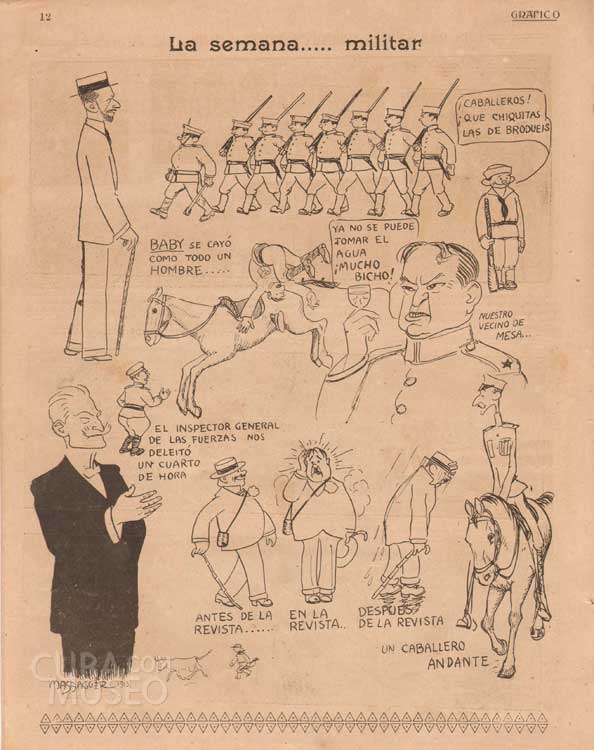 12
GRAFICO
La semana..... militar
¡CABALLEROS!
¡QUE CHIQUITAS
LAS DE BRODUEIS
BABY SE CAYÓ
COMO TODO UN
HOMBRE.....
YA NO SE PUEDE
TOMAR EL
AGUA
¡MUCHO
BICHO!
NUESTRO
VECINO DE
MESA...
EL INSPECTOR GENERAL
DE LAS FUERZAS NOS
DELEITÓ
UN CUARTO
DE HORA
ANTES DE LA
REVISTA......
EN LA
REVISTA..
DESPUES
DE LA REVISTA
UN CABALLERO
ANDANTE
MASSAGUER
CUBA.COM
MUSEO